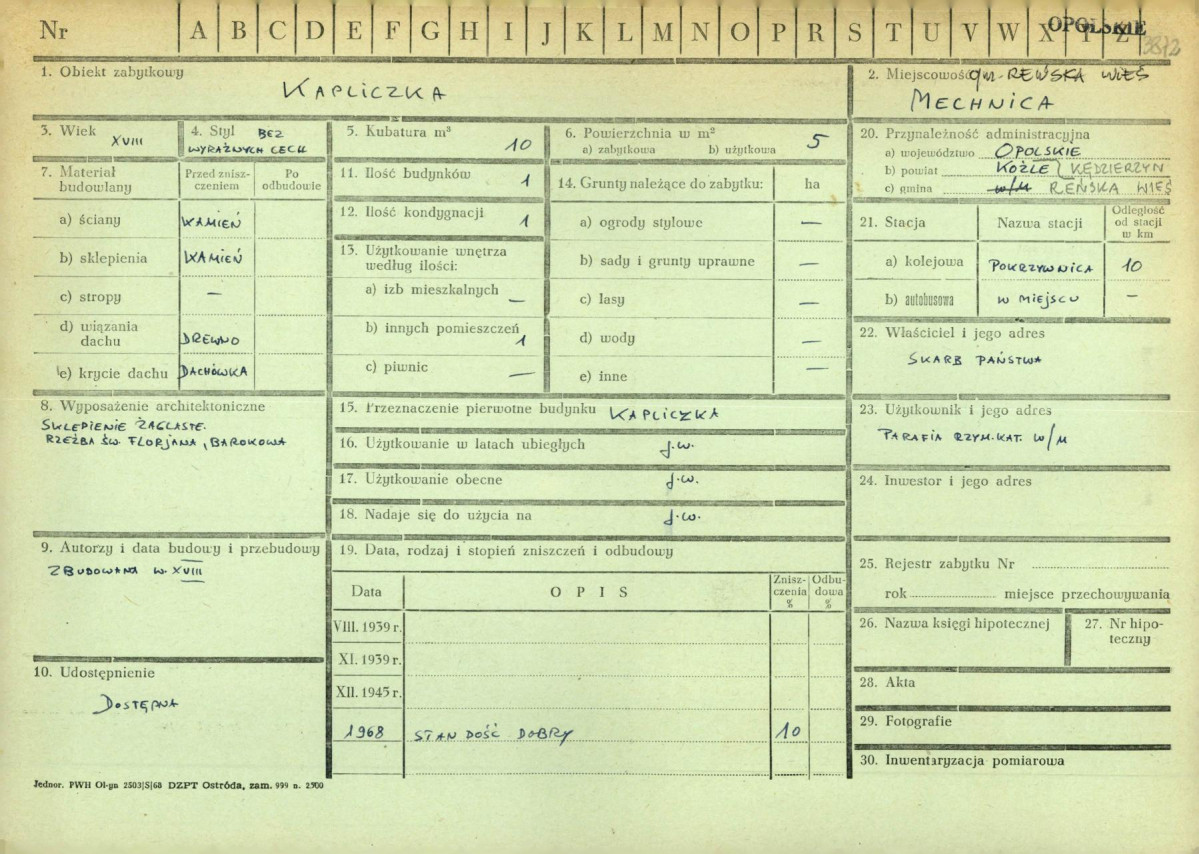 Nr A B C D E F G H I J K L M N O P R S T U V W X Y Z OPOLSKIE
3872
1. Obiekt zabytkowy
KAPLICZKA
2. Miejscowość gm. REŃSKA WIEŚ
MECHNICA
3. Wiek
XVIII
4. Styl BEZ
WYRAŹNYCH CECH
5. Kubatura m³
10
6. Powierzchnia w m²
a) zabytkowa b) użytkowa
5
7. Materiał budowlany
Przed zniszczeniem
Po odbudowie
a) ściany KAMIEŃ
b) sklepienia KAMIEŃ
c) stropy —
d) wiązania dachu DREWNO
e) krycie dachu DACHÓWKA
8. Wyposażenie architektoniczne
SKLEPIENIE ŻAGLASTE.
RZEŹBA ŚW. FLORJANA, BAROKOWA
9. Autorzy i data budowy i przebudowy
ZBUDOWANA W. XVIII
10. Udostępnienie
DOSTĘPNA
11. Ilość budynków 1
12. Ilość kondygnacji 1
13. Użytkowanie wnętrza
według ilości:
a) izb mieszkalnych —
b) innych pomieszczeń 1
c) piwnic —
14. Grunty należące do zabytku: ha
a) ogrody stylowe —
b) sady i grunty uprawne —
c) lasy —
d) wody —
e) inne —
15. Przeznaczenie pierwotne budynku KAPLICZKA
16. Użytkowanie w latach ubiegłych j.w.
17. Użytkowanie obecne j.w.
18. Nadaje się do użycia na j.w.
19. Data, rodzaj i stopień zniszczeń i odbudowy
Data OPIS Zniszczenia % Odbudowa %
VIII. 1939 r.
XI. 1939 r.
XII. 1945 r.
1968 STAN DOŚĆ DOBRY 10
20. Przynależność administracyjna
a) województwo OPOLSKIE
b) powiat KOŹLE KĘDZIERZYN
c) gmina w/m REŃSKA WIEŚ
21. Stacja Nazwa stacji Odległość od stacji w km
a) kolejowa POKRZYWNICA 10
b) autobusowa W MIEJSCU —
22. Właściciel i jego adres
SKARB PAŃSTWA
23. Użytkownik i jego adres
PARAFIA RZYM.KAT. W/M
24. Inwestor i jego adres
25. Rejestr zabytku Nr
rok miejsce przechowywania
26. Nazwa księgi hipotecznej
27. Nr hipoteczny
28. Akta
29. Fotografie
30. Inwentaryzacja pomiarowa
Jednor. PWH Ol-yn 2503|S|68 DZPT Ostróda, zam. 999 n. 2500